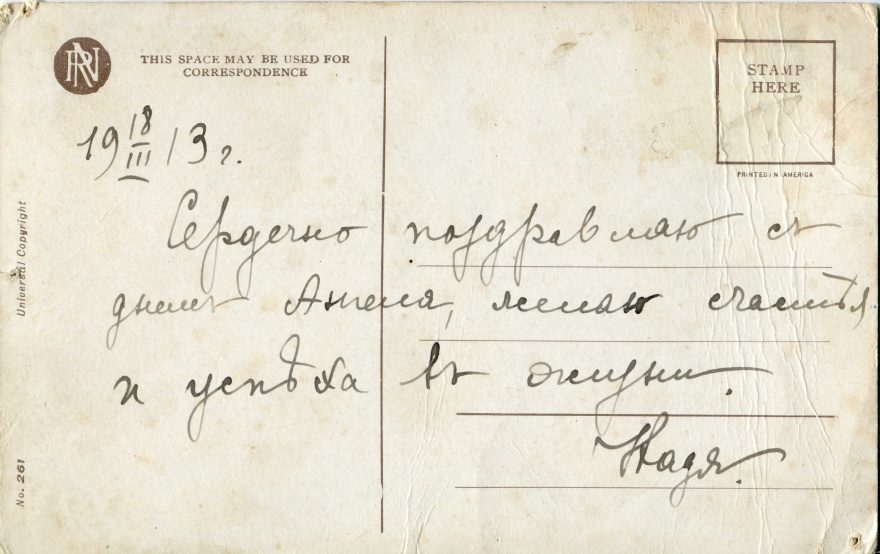 RN
THIS SPACE MAY BE USED FOR
CORRESPONDENCE
STAMP
HERE
PRINTED IN AMERICA
19 18/III 13 г.
Сердечно поздравляю съ
днемъ Ангела, желаю счастья
и успѣха въ жизни.
Надя.
Universal Copyright
No. 261